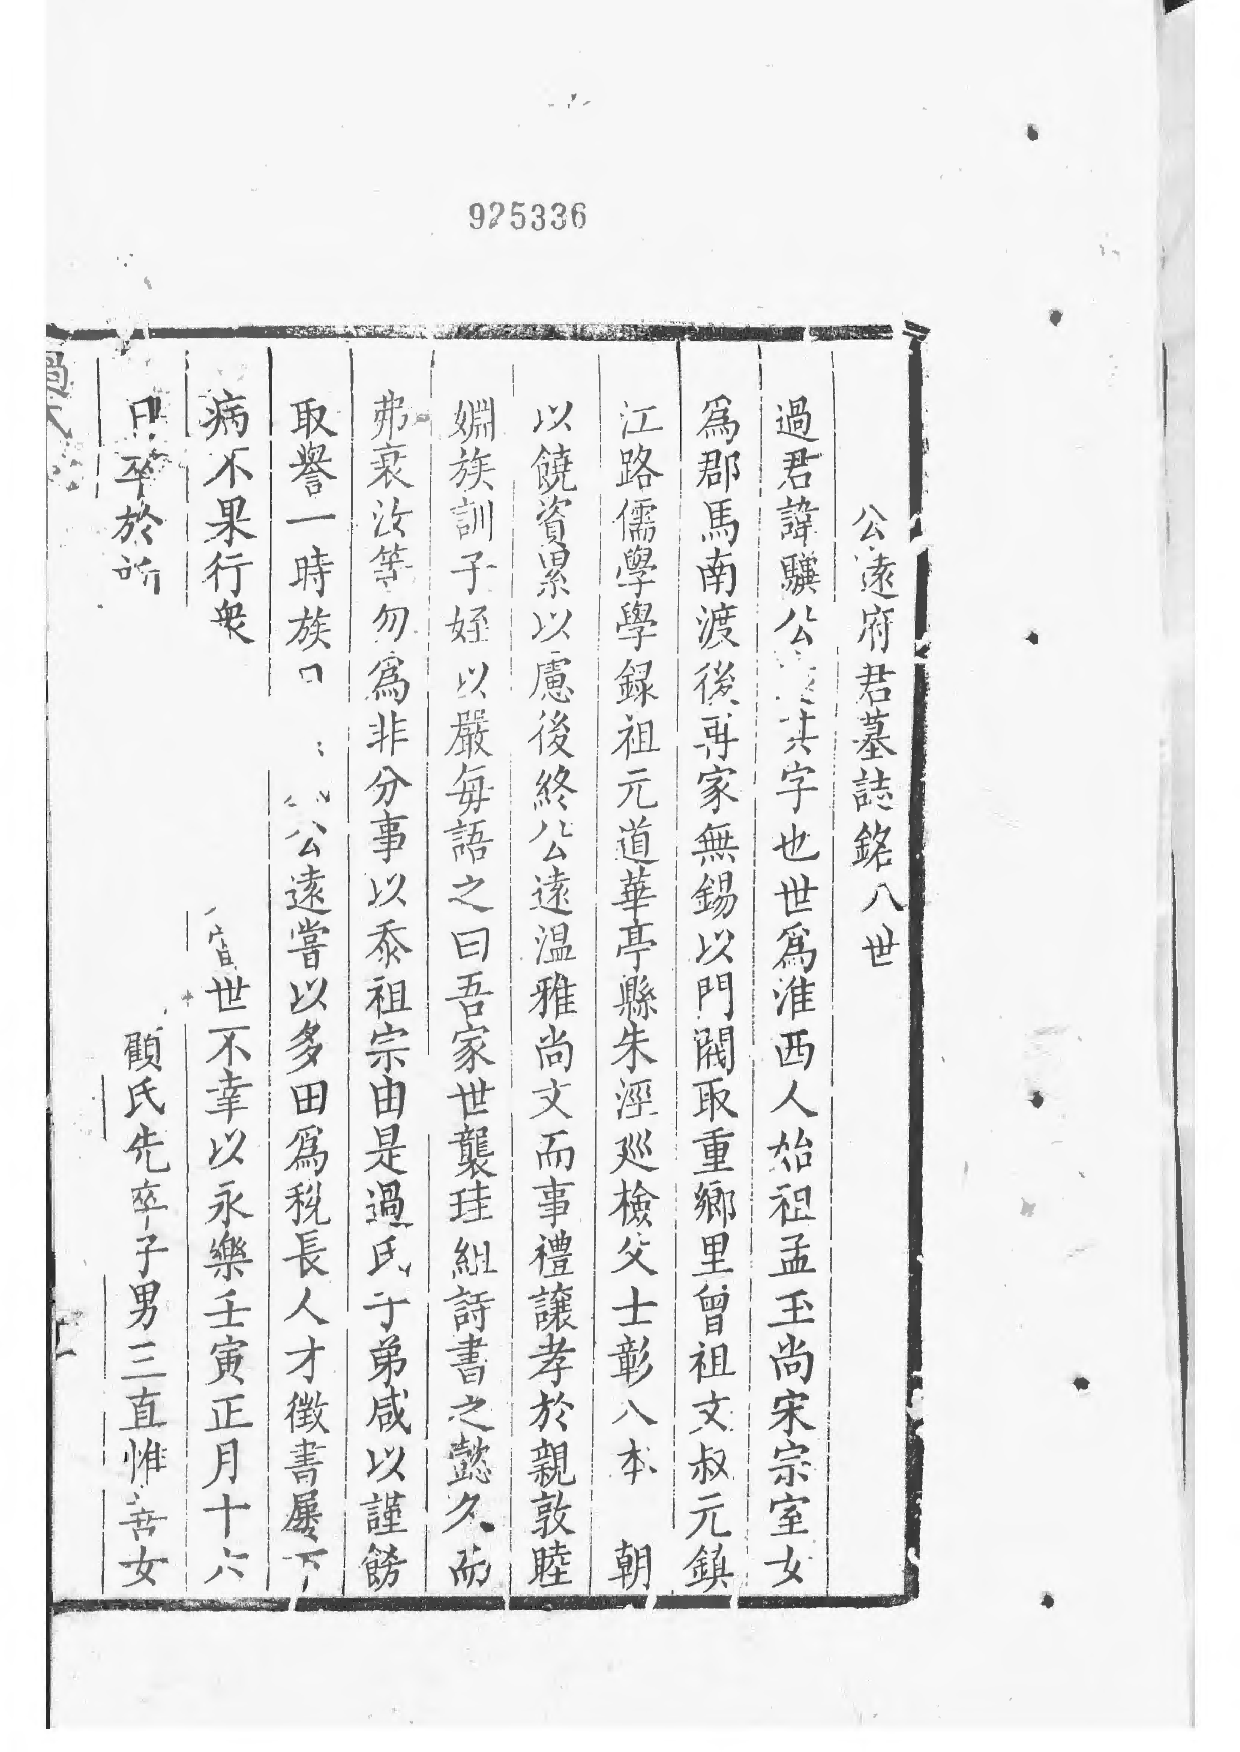 925336
公遠府君墓誌銘八世
過君諱驥公其字也世爲淮西人始祖孟玉尚宋宗室女
爲郡馬南渡後再家無錫以門閥取重鄉里曾祖文叔元鎮
江路儒學學録祖元道華亭縣朱涇廵檢父士彰入本 朝
以饒資累以慮後終公遠温雅尚文而事禮讓孝於親敦睦
婣族訓子姪以嚴每語之曰吾家世襲珪組詩書之懿久而
弗衰汝等勿爲非分事以忝祖宗由是過氏子弟咸以謹飭
取譽一時族公遠嘗以多田爲税長人才徵書屢下
病不果行衆世不幸以永樂壬寅正月十六
日卒於所顧氏先卒子男三直惟善女
過